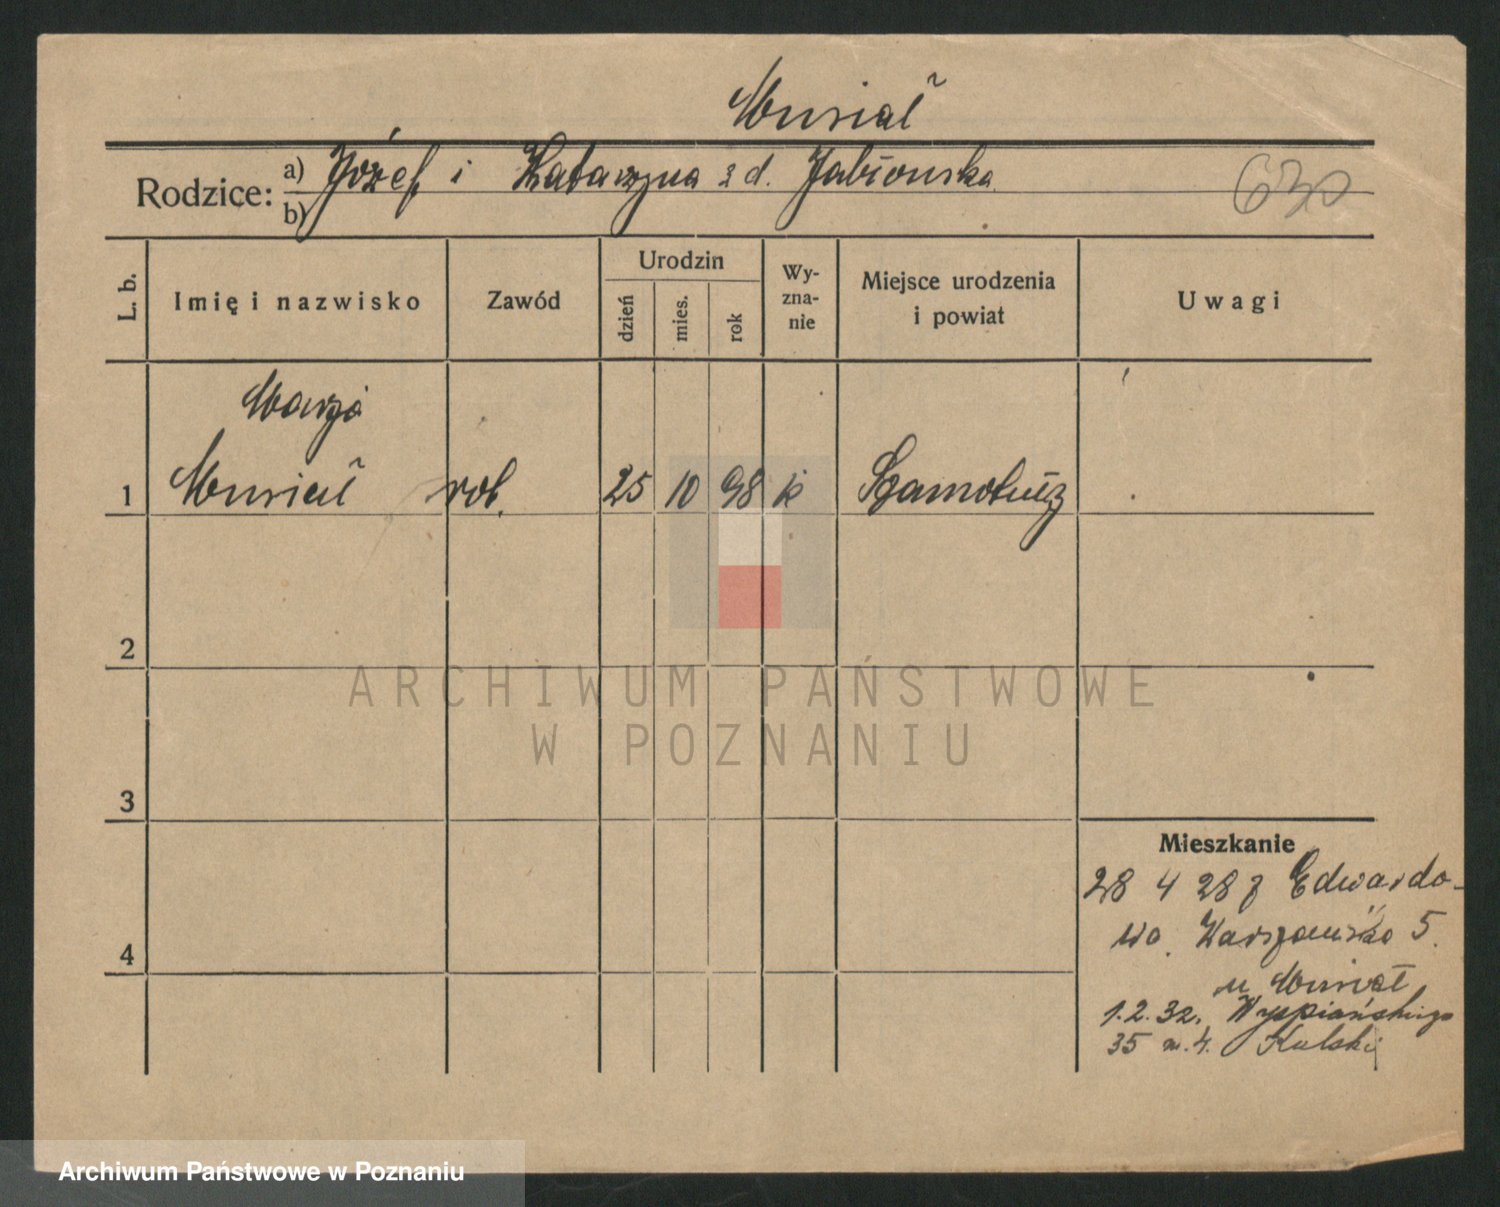 Musiał
Rodzice: a) Józef i Katarzyna z d. Jabłonska
b)
630
L. b.
Imię i nazwisko
Zawód
Urodzin
dzień
mies.
rok
Wy-
zna-
nie
Miejsce urodzenia
i powiat
Uwagi
Marja
1 Musiał rob. 25 10 98 k Szamotuły
2
3
4
Mieszkanie
28 4 28 z Edwardo-
wo. Warszawska 5.
u Musiał
1.2.32. Wyspiańskiego
35 m. 4. Kulski
ARCHIWUM PAŃSTWOWE
W POZNANIU
Archiwum Państwowe w Poznaniu